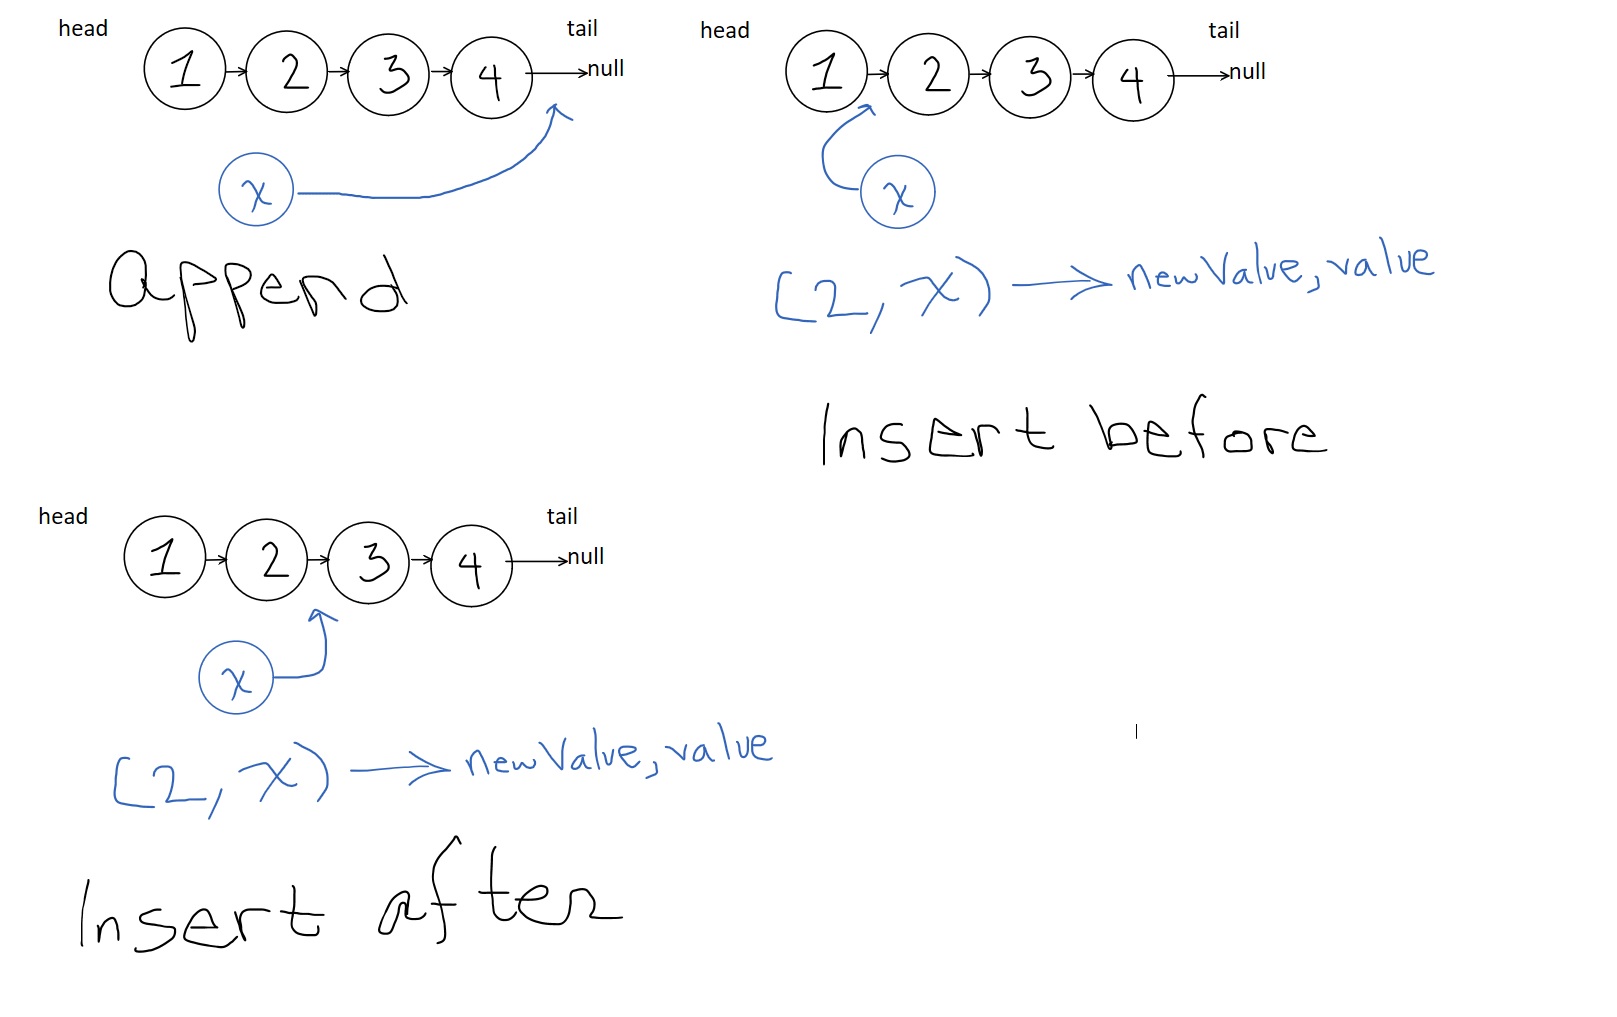 head 1 2 3 4 tail null
x
append
head 1 2 3 4 tail null
x
(2, x) → newValue, value
Insert before
head 1 2 3 4 tail null
x
(2, x) → newValue, value
Insert after